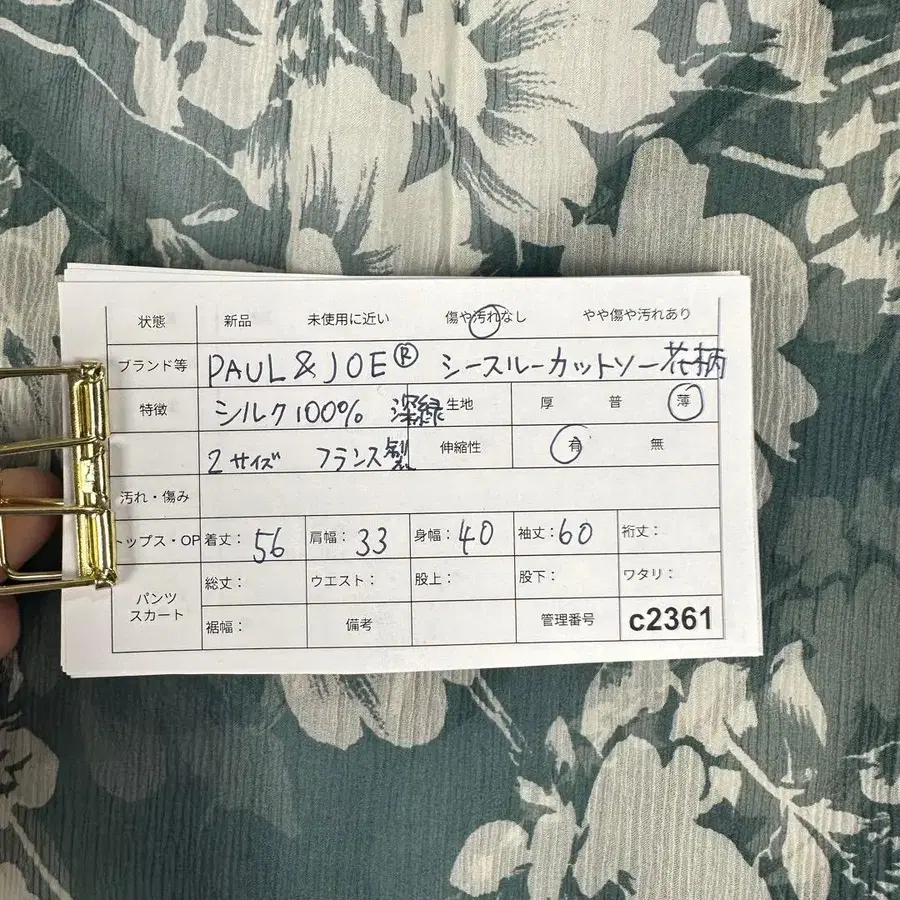 状態 新品 未使用に近い 傷や汚れなし やや傷や汚れあり
ブランド等 PAUL & JOE® シースルーカットソー花柄
特徴 シルク100% 深緑 生地 厚 普 薄
2サイズ フランス製 伸縮性 有 無
汚れ・傷み
トップス・OP 着丈: 56 肩幅: 33 身幅: 40 袖丈: 60 裄丈:
パンツ スカート 総丈: ウエスト: 股上: 股下: ワタリ:
裾幅: 備考 管理番号 c2361